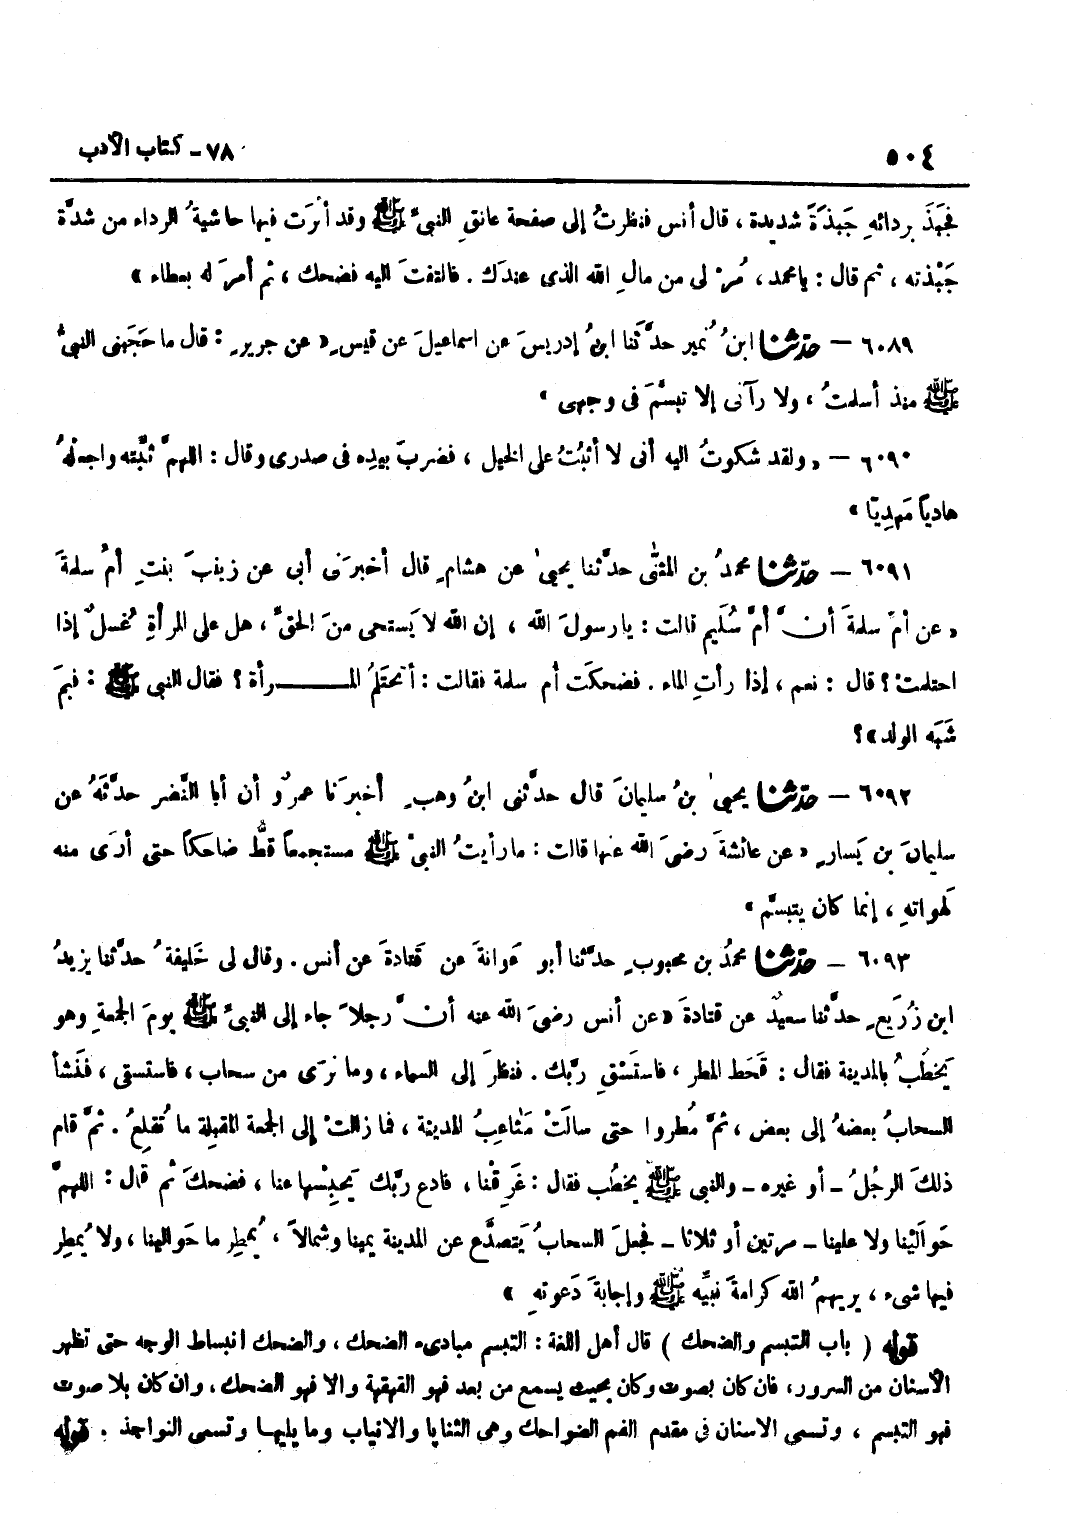 ٥٠٤ ٧٨ - كتاب الأدب
فجَبَذَ بردائهِ جَبذَةً شديدة ، قال أنس فنظرتُ إلى صفحة عاتقِ النبيِّ ﷺ وقد أثرَت فيها حاشيةُ الرداء من شدَّة
جَبْذته ، ثم قال : يا محمد ، مُرْ لى من مالِ الله الذى عندَك . فالتفتَ اليه فضحك ، ثم أمرَ له بعطاء »
٦٠٨٩ – حدّثنا ابنُ نُمير حدَّثَنا ابنُ إدريسَ عن اسماعيلَ عن قيسٍ « عن جريرٍ : قال ما حَجَبَنى النبىُّ
ﷺ منذ أسلمتُ ، ولا رآنى إلا تبسَّمَ فى وجهى »
٦٠٩٠ – « ولقد شكوتُ اليه أنى لا أثبُتُ على الخيل ، فضربَ بيدِه فى صدرى وقال : اللهمَّ ثبِّته واجعلْهُ
هادياً مَهدِيّا »
٦٠٩١ – حدّثنا محمدُ بن المثنّى حدَّثنا يحيىٰ عن هشامٍ قال أخبرَنى أبى عن زينبَ بنتِ أمُّ سلمةَ
« عن أمّ سلمةَ أنَّ أمَّ سُلَيم قالت : يا رسولَ الله ، إن الله لا يَستحى منَ الحقّ ، هل على المرأةِ غُسلٌ إذا
احتلمتْ ؟ قال : نعم ، إذا رأتِ الماء . فضحكَت أم سلمة فقالت : أتحتَلِمُ المـــــرأة ؟ فقال النبى ﷺ : فبمَ
شَبَه الولد » ؟
٦٠٩٢ – حدّثنا يحيىٰ بنُ سليمانَ قال حدَّثنى ابنُ وهبٍ أخبرَنا عمرٌو أن أبا النَّضر حدَّثَهُ عن
سليمانَ بن يَسارٍ « عن عائشةَ رضىَ الله عنها قالت : ما رأيتُ النبىَّ ﷺ مستجمعاً قطُّ ضاحكاً حتى أرَى منه
لهواتهِ ، إنما كان يتبسَّم »
٦٠٩٣ – حدّثنا محمدُ بن محبوبٍ حدَّثنا أبو عَوانةَ عن قتادةَ عن أنس . وقال لى خَليفةُ حدَّثنا يزيدُ
ابن زُرَيعٍ حدَّثنا سعيدٌ عن قتادةَ « عن أنس رضىَ الله عنه أنَّ رجلاً جاء إلى النبىِّ ﷺ يومَ الجمعةِ وهو
يَخطُبُ بالمدينة فقال : قَحَط المطر ، فاستَسْقِ ربَّك . فنظرَ إلى السماء ، وما نَرَى من سحاب ، فاستسقى ، فنَشأ
السحابُ بعضهُ إلى بعض ، ثمَّ مُطروا حتى سالَتْ مَثاعِبُ المدينة ، فما زالت إلى الجمعة المقبِلة ما تُقلِعُ . ثمَّ قام
ذلكَ الرجُلُ – أو غيره – والنبى ﷺ يخطُب فقال : غَرِقْنا ، فادع ربَّك يَحبِسْها عنا ، فضحكَ ثم قال : اللهمَّ
حَوالَيْنا ولا علينا – مرتين أو ثلاثا – فجعلَ السحابُ يَتصدَّع عن المدينة يمينا وشمالاً ، يُمطِر ما حَوالينا ، ولا يُمطِر
فيها شىء ، يريهمُ الله كرامةَ نبيِّه ﷺ وإجابةَ دَعوتهِ »
قوله ( باب التبسم والضحك ) قال أهل اللغة : التبسم مبادىء الضحك ، والضحك انبساط الوجه حتى تظهر
الأسنان من السرور ، فان كان بصوت وكان بحيث يسمع من بعد فهو القهقهة والا فهو الضحك ، وان كان بلا صوت
فهو التبسم ، وتسمى الاسنان فى مقدم الفم الضواحك وهى الثنايا والانياب وما يليها وتسمى النواجذ . قوله